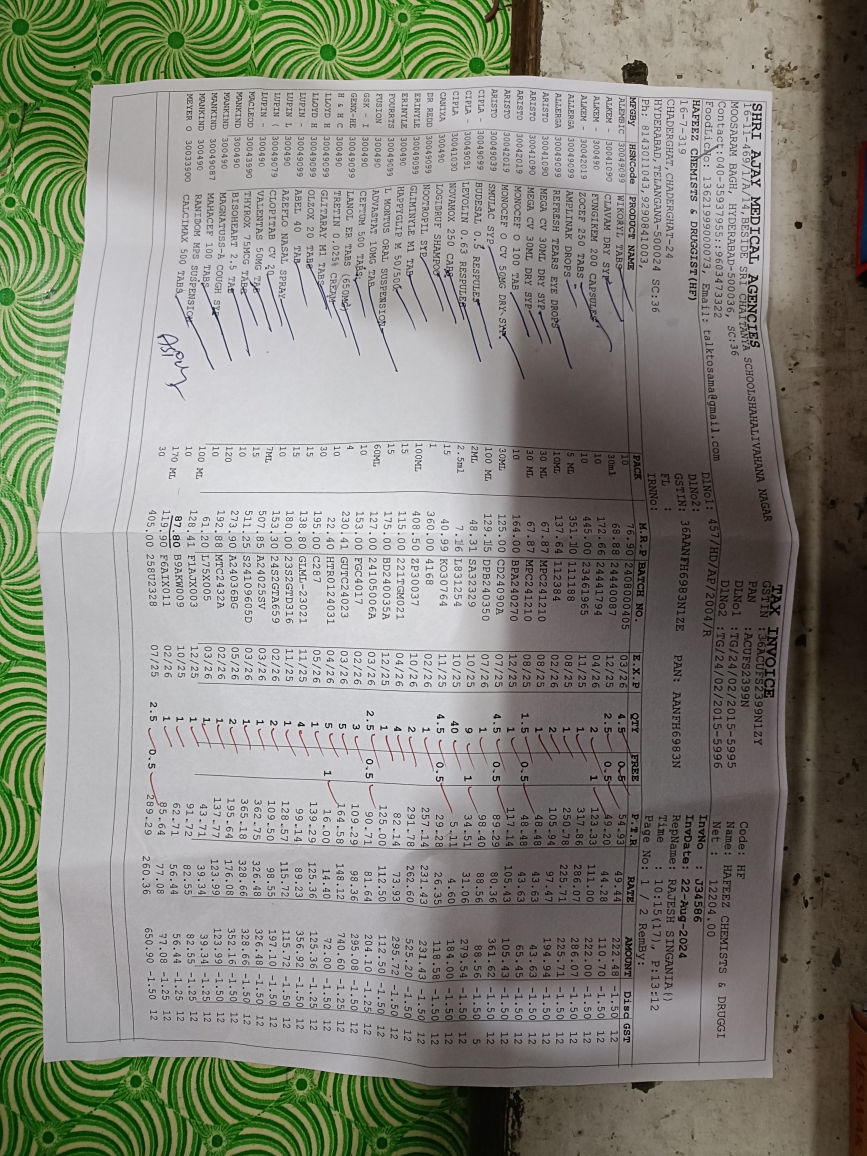 SHRI AJAY MEDICAL AGENCIES
16-11-469/17/A/14, BESIDE SRI CHAITANYA SCHOOLSHAHALIVAHANA NAGAR
MOOSARAM BAGH, HYDERABAD-500036, SC:36
Contact:040-35937955::9603473322
FoodLicNo: 13621999000073, Email: talktosama@gmail.com
TAX INVOICE
GSTIN :36ACUFS2399N1ZY
PAN :ACUFS2399N
DLNo1 :TG/24/02/2015-5995
DlNo2 :TG/24/02/2015-5996
Code: HF
Name: HAFEEZ CHEMISTS & DRUGGI
Net : 12204.00
HAFEEZ CHEMISTS & DRUGGIST(HF)
16-7-319
CHADERGHAT, CHADERGHAT-24
HYDERABAD, TELANGANA-500024 SC:36
Ph: 8143201043,9290841003
DlNo1: 457/HD/AP/2004/R
DlNo2:
GSTIN: 36AANFH6983N1ZE PAN: AANFH6983N
FL :
IRNNo:
InvNo : UJ34586
InvDate: 22-Aug-2024
RepName: RAJESH SINGANIA()
Time :10:15(17), P:13:12
Page No: 1 / 2 RemBy:
MFGBy HSNCode PRODUCT NAME PACK M.R.P BATCH NO. E.X.P QTY FREE P.T.R RATE AMOUNT Disc GST
ALEMBIC 30049099 WIKORYL TABS 10 76.90 2408000405 03/26 4.5 0.5 54.93 49.44 222.48 -1.50 12
ALKEM - 30041090 CLAVAM DRY SYP 30ml 68.88 24440087 12/25 2.5 0.5 49.20 44.28 110.70 -1.50 12
ALKEM - 300490 FUNGIKEM 200 CAPSULES 10 172.66 24441794 04/26 2 1 123.33 111.00 222.00 -1.50 12
ALKEM - 30042019 ZOCEF 250 TABS 10 445.00 23461965 11/25 1 317.86 286.07 286.07 -1.50 12
ALLERGA 30049099 AMPLINAK DROPS 5 ML 351.10 111188 08/25 1 250.78 225.71 225.71 -1.50 12
ALLERGA 30049099 REFRESH TEARS EYE DROPS 10ML 137.64 112384 02/26 2 105.94 97.47 194.94 -1.50 12
ARISTO 30041090 MEGA CV 30ML DRY SYP 30 ML 67.87 MPC241210 08/25 1 48.48 43.63 43.63 -1.50 12
ARISTO 30041090 MEGA CV 30ML DRY SYP 30 ML 67.87 MPC241210 08/25 1.5 0.5 48.48 43.63 65.45 -1.50 12
ARISTO 30042019 MONOCEF O 100 TAB 10 164.00 BPA240270 12/25 1 117.14 105.43 105.43 -1.50 12
ARISTO 30042019 MONOCEF CV 50MG DRY SYP 30ML 125.00 CD24090A 07/26 4.5 0.5 89.29 80.36 361.62 -1.50 12
ARISTO 30049039 SMULAC SYP 100 ML 129.15 DPB240350 07/26 1 98.40 88.56 88.56 -1.50 12
CIPLA - 30049099 BUDESAL 0.5 RESPULES 2ML 48.31 SA32329 10/25 9 1 34.51 31.06 279.54 -1.50 5
CIPLA - 30049091 LEVOLIN 0.63 RESPULES 2.5ml 7.16 L831254 10/25 40 5.11 4.60 184.00 -1.50 12
CIPLA 30041030 NOVAMOX 250 CAPS 15 40.99 KO30764 11/25 4.5 0.5 29.28 26.35 118.58 -1.50 12
CANIXA 300490 LOGIDRUF SHAMPOO 1 360.00 4168 02/26 1 257.14 231.43 231.43 -1.50 12
DR REDD 30049099 NOOTROPIL SYP 100ML 408.50 ZE30037 10/26 2 291.78 262.60 525.20 -1.50 12
ERINYLE 30049099 GLIMINYLE M1 TAB 15 115.00 221TGM021 04/26 4 82.14 73.93 295.72 -1.50 12
ERINYLE 300490 HAPPYGLIP M 50/500 15 175.00 BD240035A 12/25 1 125.00 112.50 112.50 -1.50 12
FOURRTS 30049099 L MONTUS ORAL SUSPENSION 60ML 127.00 24105006A 03/26 2.5 0.5 90.71 81.64 204.10 -1.50 12
FUSION 300490 ADVASTAT 10MG TAB 10 153.00 FGC4017 02/26 3 109.29 98.36 295.08 -1.50 12
GSK - I 300490 CEFTUM 500 TABS 4 230.41 GUTC24023 03/26 5 164.58 148.12 740.60 -1.25 12
GENX-HE 30049099 LANOL ER TABS (650MG) 10 22.40 HTR0124031 04/26 5 1 16.00 14.40 72.00 -1.50 12
H & H C 300490 TRETIN 0.025% CREAM 30 195.00 C287 05/26 1 139.29 125.36 125.36 -1.50 12
LLOYD H 30049099 GLITARAY M1 TABS 15 138.80 GLML-23021 11/25 4 99.14 89.23 356.92 -1.50 12
LLOYD H 30049099 OLZOX 20 TABS 15 180.00 23S2GTD316 11/25 1 128.57 115.72 115.72 -1.50 12
LUPIN - 30049099 ABEL 40 TAB 10 153.30 24S2GTA659 02/26 2 109.50 98.55 197.10 -1.50 12
LUPIN L 300490 AZEFLO NASAL SPRAY 7ML 507.85 A24025SV 03/26 1 362.75 326.48 326.48 -1.50 12
LUPIN - 30049079 CLOPITAB CV 20 15 511.25 S2410960SD 03/26 1 365.18 328.66 328.66 -1.50 12
LUPIN - 300490 VALENTAS 50MG TAB 10 273.90 A24036BG 05/26 2 195.64 176.08 352.16 -1.50 12
MACLEOD 30043990 THYROX 75MCG TABS 120 192.88 MTC2432A 03/26 1 137.77 123.99 123.99 -1.50 12
MANKIND 300490 BISOHEART 2.5 TAB 10 61.20 L75X005 03/26 1 43.71 39.34 39.34 -1.25 12
MANKIND 300490 MAGNATUSS-A COUGH SYP 100 ML 128.41 F1AJX003 12/25 1 91.72 82.55 82.55 -1.25 12
MANKIND 30049087 MAHACEF 100 TABS 10 87.80 B9AKW009 10/25 1 62.71 56.44 56.44 -1.25 12
MANKIND 300490 RANIDOM MPS SUSPENSION 170 ML 119.90 F6AIX011 02/26 1 85.64 77.08 77.08 -1.25 12
MEYER O 30033900 CALCIMAX 500 TABS 30 405.00 258U2328 07/25 2.5 0.5 289.29 260.36 650.90 -1.50 12